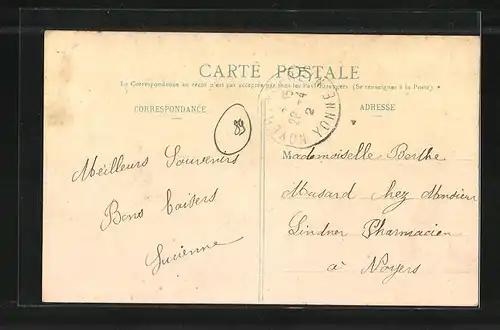 CARTE POSTALE
La Correspondance au recto n'est pas acceptée par tous les Pays étrangers (Se renseigner à la Poste)
CORRESPONDANCE
ADRESSE
Meilleurs Souvenirs
Bons baisers
Lucienne
Mademoiselle Berthe
Musard chez Monsieur
Lindner Pharmacien
à Noyers